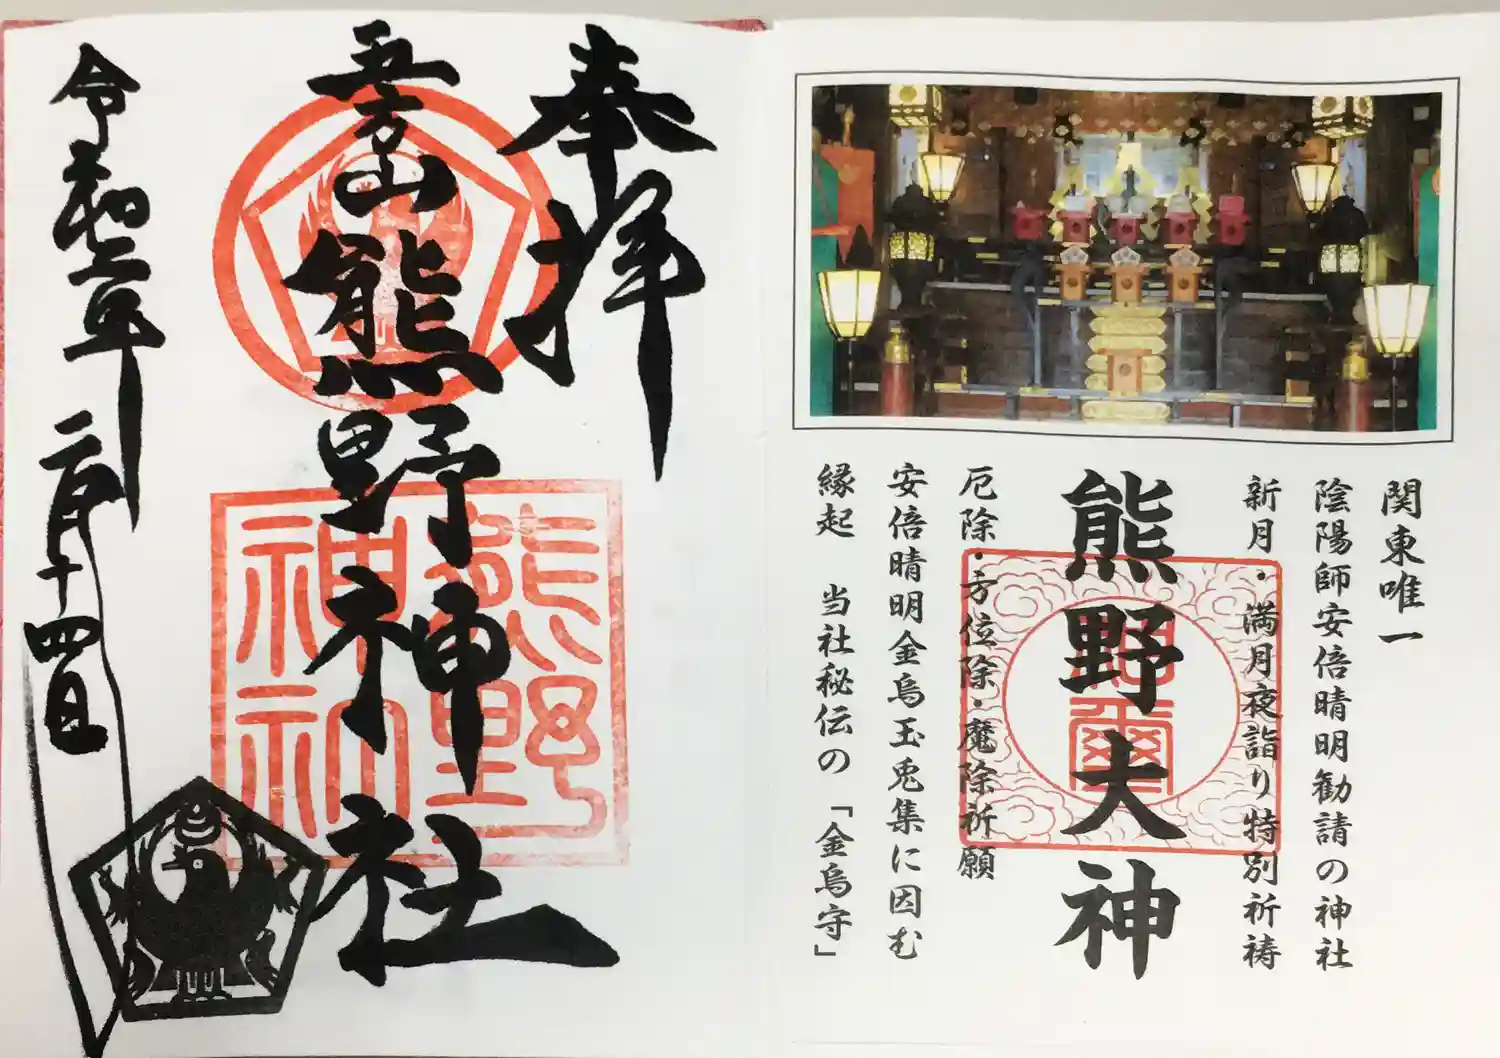 関東唯一
陰陽師安倍晴明勧請の神社
新月・満月夜詣り特別祈祷
熊野大神
厄除・方位除・魔除祈願
安倍晴明金烏玉兎集に因む
縁起　当社秘伝の「金烏守」
奉拝
五方山熊野神社
熊野
神社
令和二年二月十四日